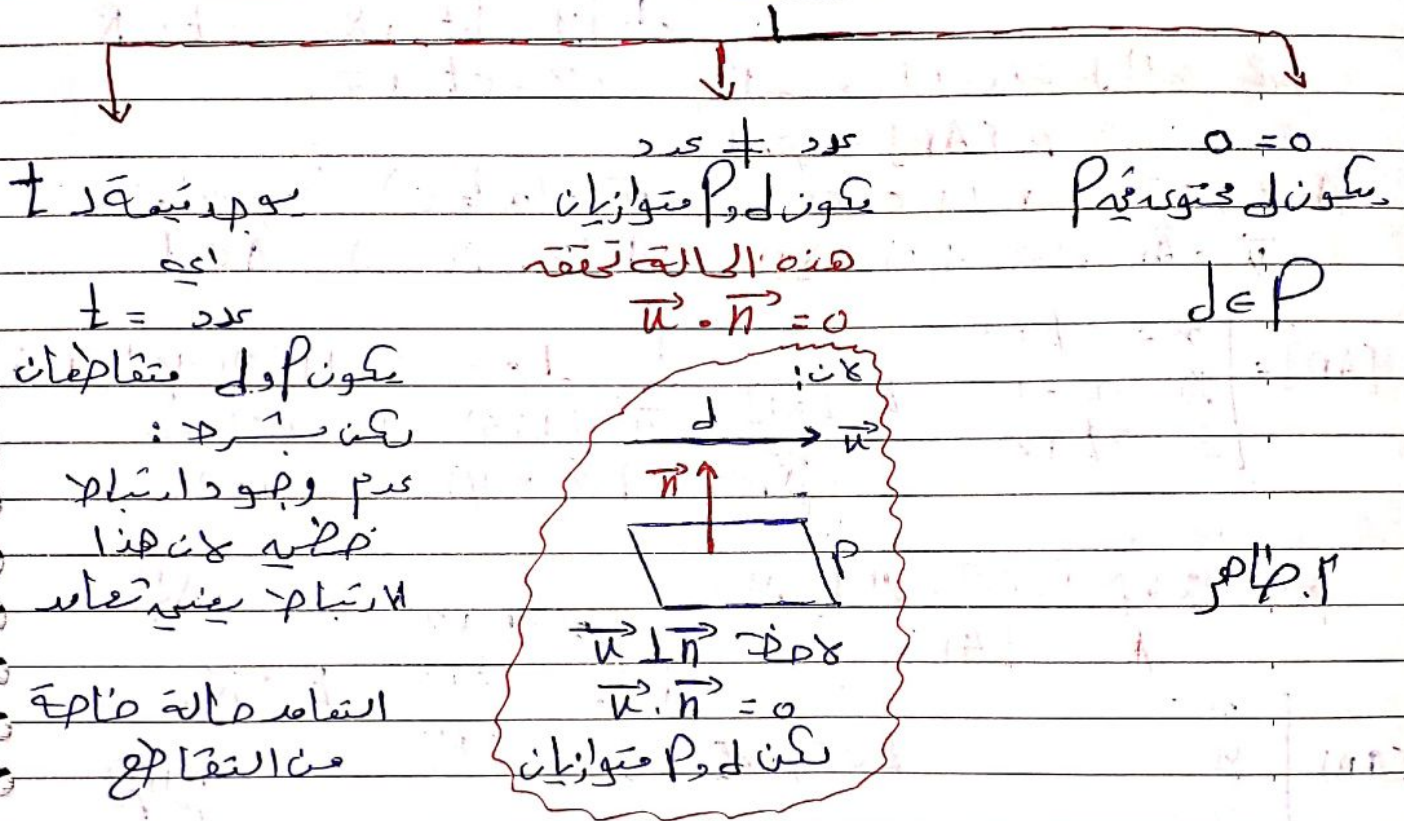 0 = 0
ويكون d محتوى في P
d ∈ P
أ. طاهر
عدد ≠ عدد
يكون d و P متوازيان
هذه الحالة تحقق
u⃗ . n⃗ = 0
لان:
d
u⃗
n⃗
P
لاحظ u⃗ ⊥ n⃗
u⃗ . n⃗ = 0
لكن d و P متوازيان
يوجد قيمة لـ t
اي
t = عدد
يكون P و d متقاطعان
لكن بشرط:
عدم وجود ارتباط
خطي لان هذا
الارتباط يعني تعامد
التعامد حالة خاصة
من التقاطع